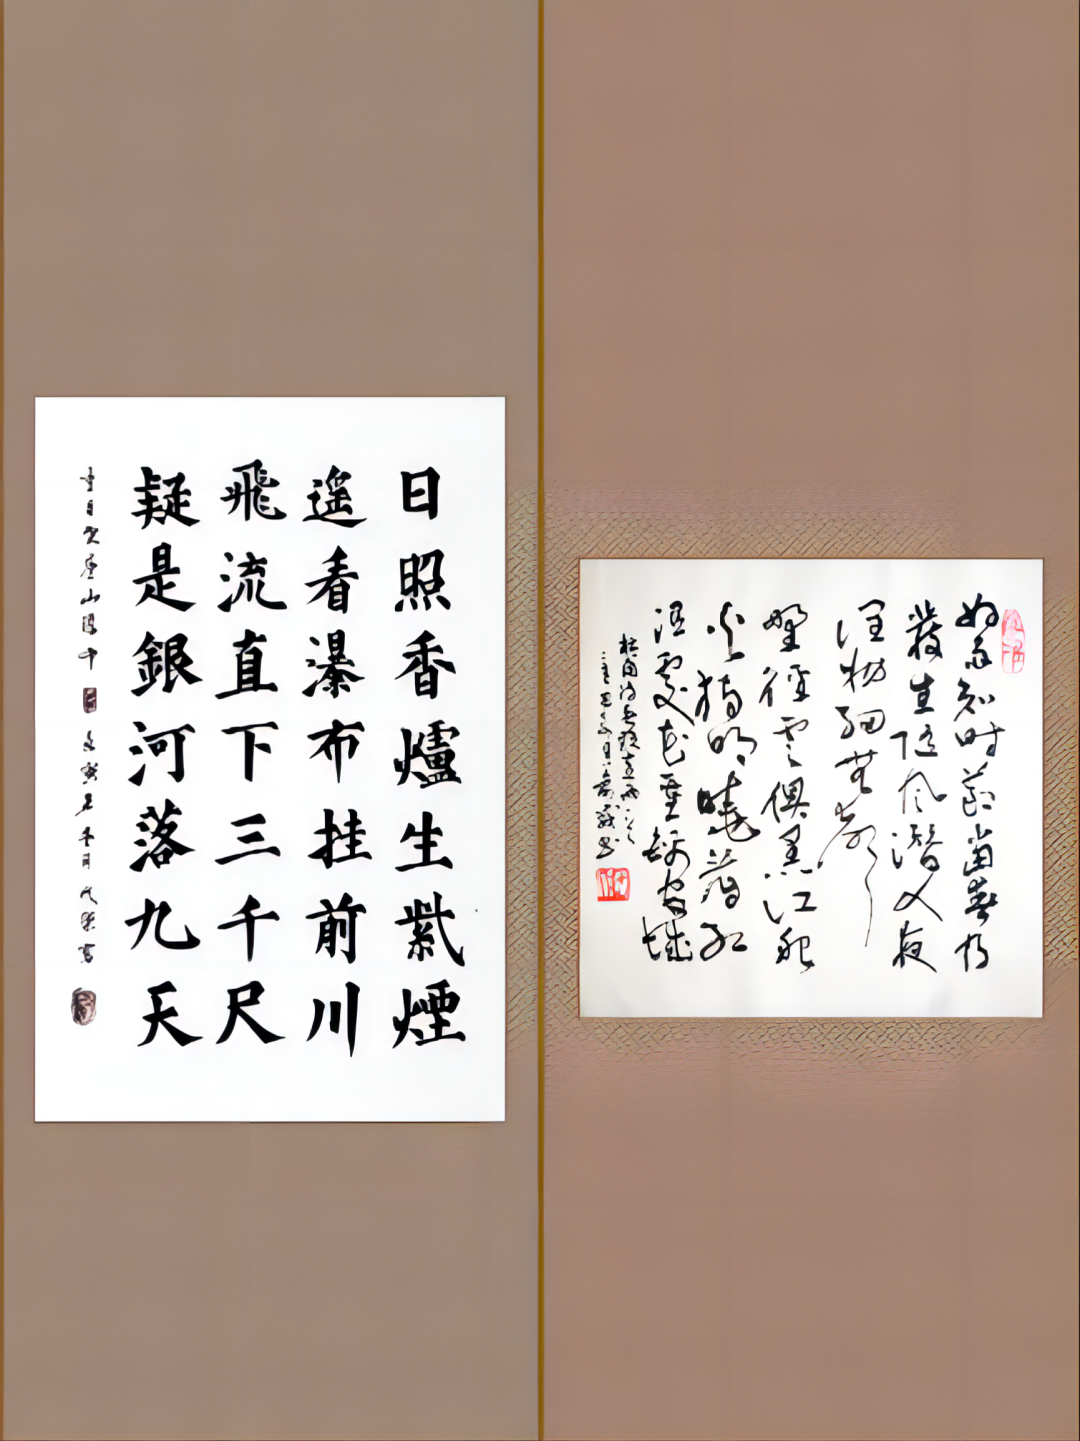 日照香爐生紫煙
遙看瀑布挂前川
飛流直下三千尺
疑是銀河落九天
好雨知时節當春乃
發生随风潜入夜
潤物細無聲
野徑雲俱黑江船
火獨明曉紅
濕處花重錦官城
杜甫诗春夜喜雨一首